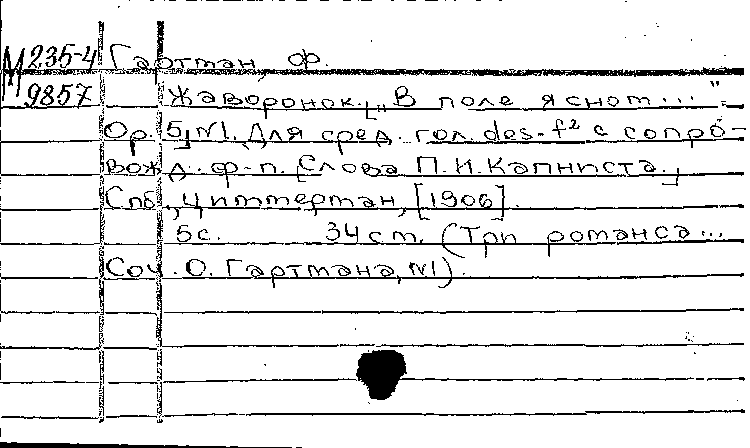 М 235-4 Гартман, Ф.
9857 Жаворонок. [„В поле ясном..."
Ор. 5, №1. Для сред. гол. des-f² с сопро-
вожд. ф-п. [Слова П.И. Капниста.]
Спб., Циммерман, [1906].
5 с. 34 см. (Три романса...
Соч. О. Гартмана, №1).